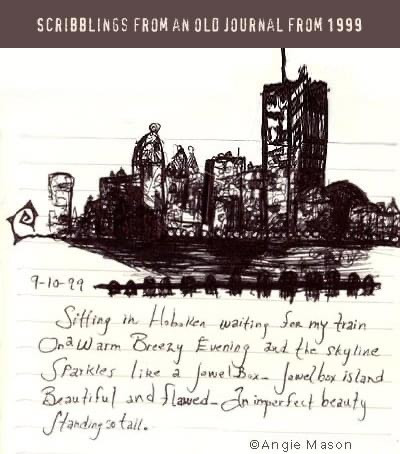 SCRIBBLINGS FROM AN OLD JOURNAL FROM 1999
9-10-99
Sitting in Hoboken waiting for my train
On a Warm Breezy Evening and the skyline
Sparkles like a jewel Box - Jewelbox island
Beautiful and flawed - An imperfect beauty
Standing so tall.
©Angie Mason